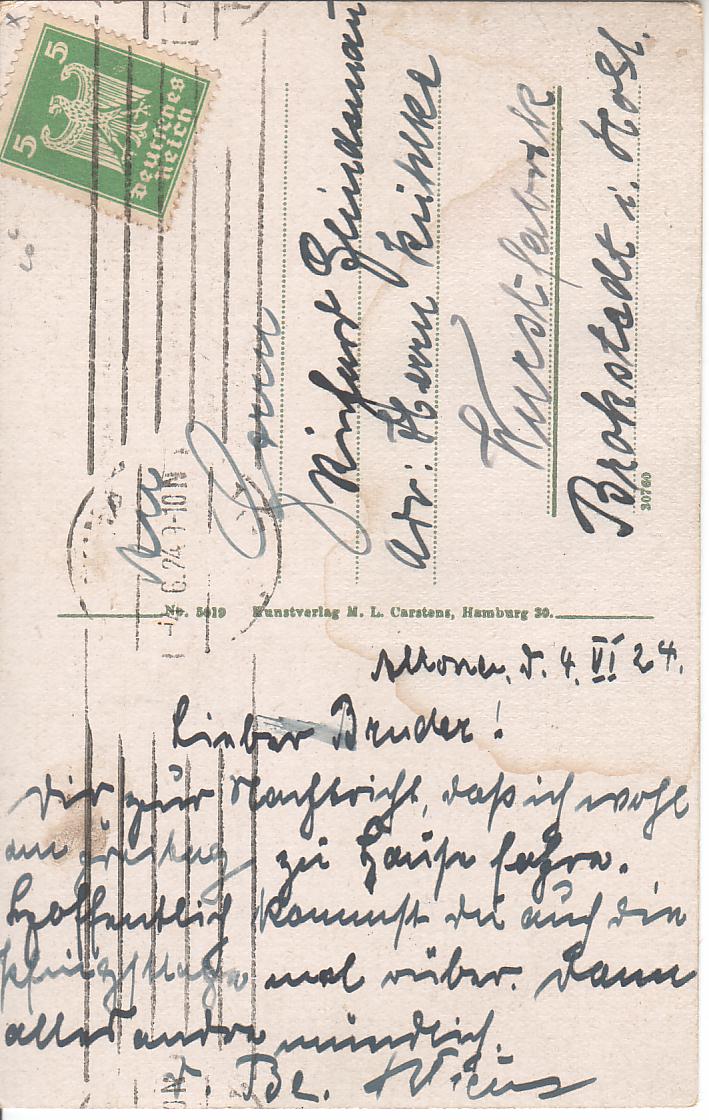 5
5
Deutsches
Reich
6.24 9-10 N
An
Herrn
Richard
Adr: Herrn
Wurstfabrik
Brokstedt i. Holst.
30760
No. 5019 Kunstverlag M. L. Carstens, Hamburg 30.
Altona, d. 4. VI 24.
Lieber Bruder!
Dir zur Nachricht, daß ich wohl
am Freitag zu Hause fahre.
Hoffentlich kommst du auch die
Pfingsttage mal rüber. Dann
alles andre mündlich.
d. Br.